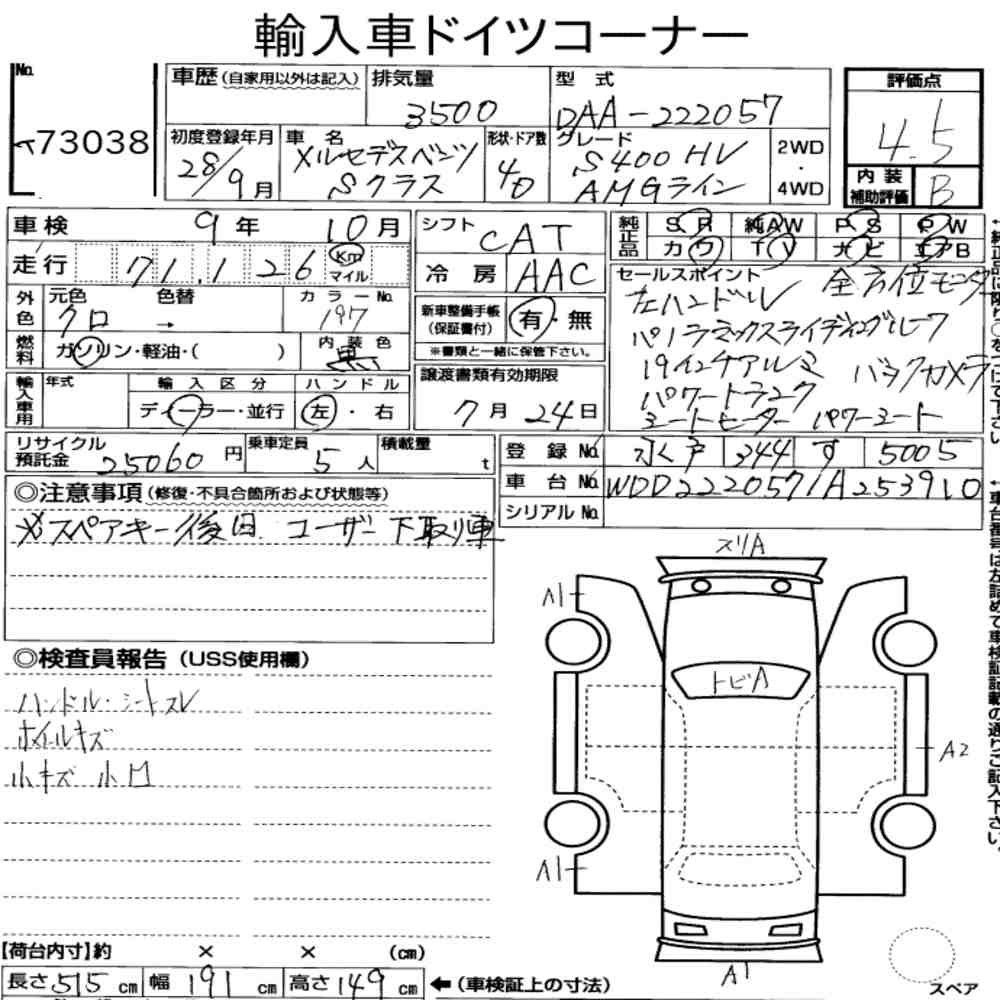 輸入車ドイツコーナー
No.
73038
車歴(自家用以外は記入)
排気量
3500
型 式
DAA-222057
評価点
4.5
初度登録年月
28/9月
車 名
メルセデスベンツ
Sクラス
形状・ドア数
4D
グレード
S400 HV
AMGライン
2WD
・
4WD
内 装
補助評価
B
車検
9年
10月
シフト
CAT
純正品
S R
純AW
P S
P W
カワ
TV
ナビ
エアB
走行
71,126
Km
マイル
冷 房
AAC
セールスポイント
左ハンドル
全方位モニター
パノラミックスライディングルーフ
19インチアルミ
バックカメラ
パワートランク
シートヒーター パワーシート
外色
元色
色替
クロ →
カラーNo.
197
新車整備手帳
(保証書付)
有・無
※書類と一緒に保管下さい。
燃料
ガソリン・軽油・( )
内 装 色
黒
輸入車用
年式
輸 入 区 分
ディーラー・並行
ハ ン ド ル
左・右
譲渡書類有効期限
7月24日
リサイクル
預託金
25060円
乗車定員
5人
積載量
t
登 録 No.
344
す
5005
車 台 No.
WDD2220571A253910
シリアル No.
◎注意事項(修復・不具合箇所および状態等)
※スペアキー後日 ユーザー下取り車
スリA
A1
トビA
A2
A1
A1
◎検査員報告(USS使用欄)
ハンドル・シートスレ
ホイールキズ
小キズ 小凹
【荷台内寸】約 × × (cm)
長さ515cm
幅191cm
高さ149cm
←(車検証上の寸法)
スペア